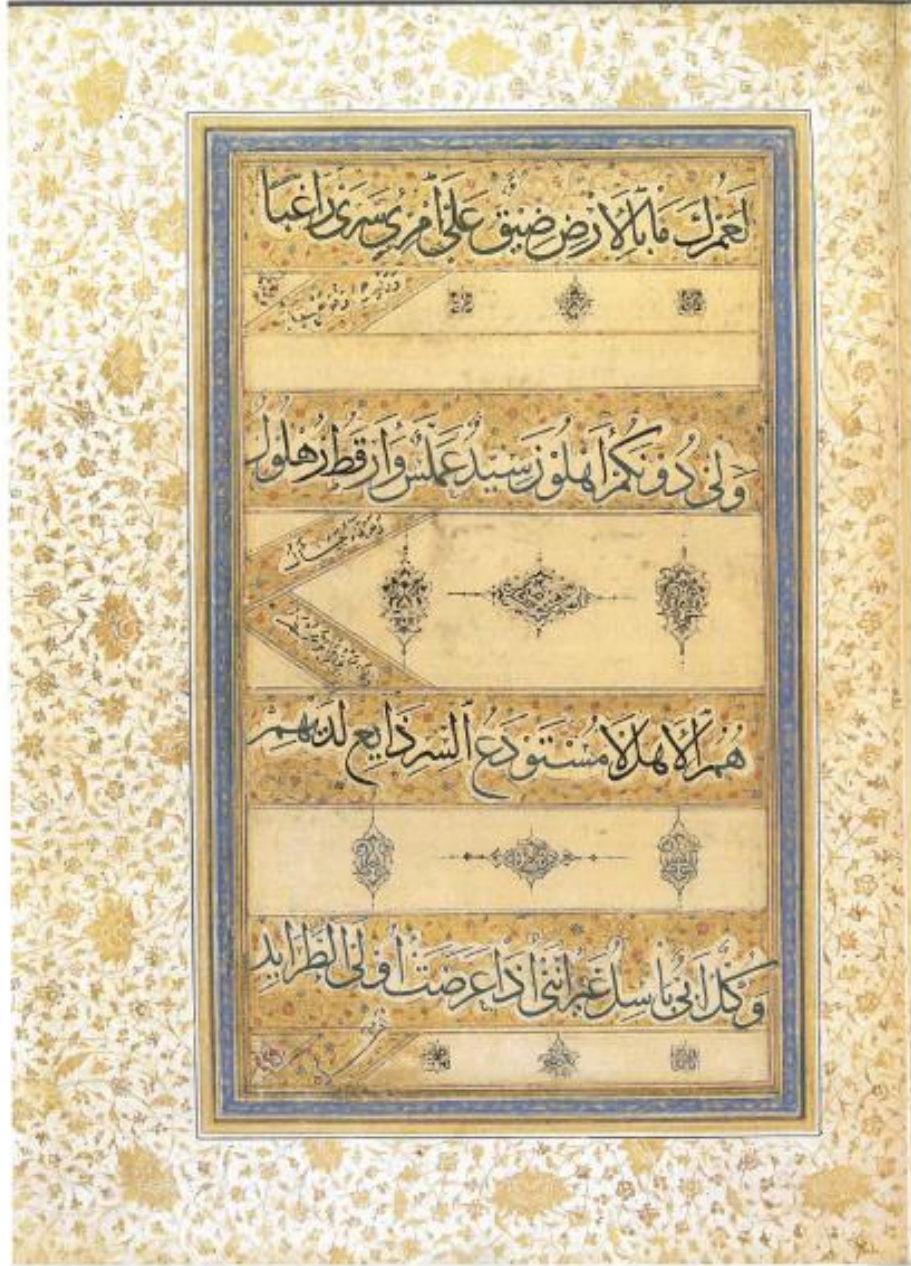 لَعَمْرُكَ مَا بِالْأَرْضِ ضِيقٌ عَلَى ٱمْرِئٍ سَرَى رَاغِبًا
وَلِي دُونَكُمْ اَهْلُونَ سِيدٌ عَمَلَّسٌ وَاَرْقَطُ زُهْلُولٌ
وَعَرْفَاءُ جَيْاَلُ
هُمُ ٱلْاَهْلُ لَا مُسْتَوْدَعُ ٱلسِّرِ ذَايِعٌ لَدَيْهِمْ
وَكُلٌّ اَبِيٌّ بَاسِلٌ غَيْرَ اَنَّنِي اِذَا عَرَضَتْ اُولَى الطَّرَايِدِ